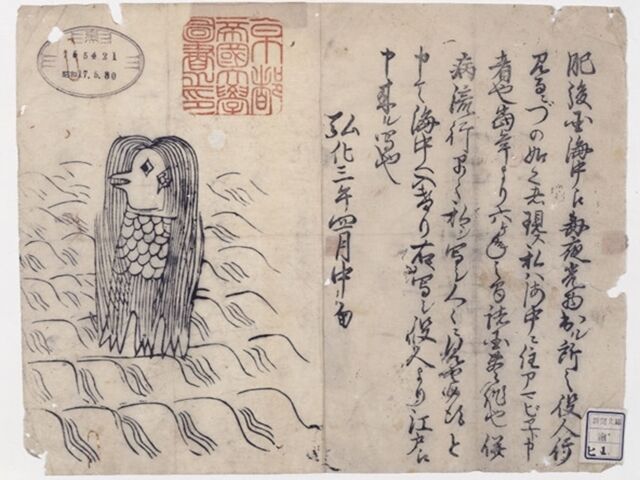 肥後国海中え毎夜光物出ル所之役人行
見るニづの如之者現ス私ハ海中ニ住アマビヱト申
者也當年より六ヶ年之間諸国豊作也併
病流行早々私ヲ写シ人々ニ見セ候得と
申て海中へ入けり右写シ役人より江戸え
申来ル写也
弘化三年四月中旬
京都
帝國大學
圖書之印
165421
昭和17.5.30
ヒ 1